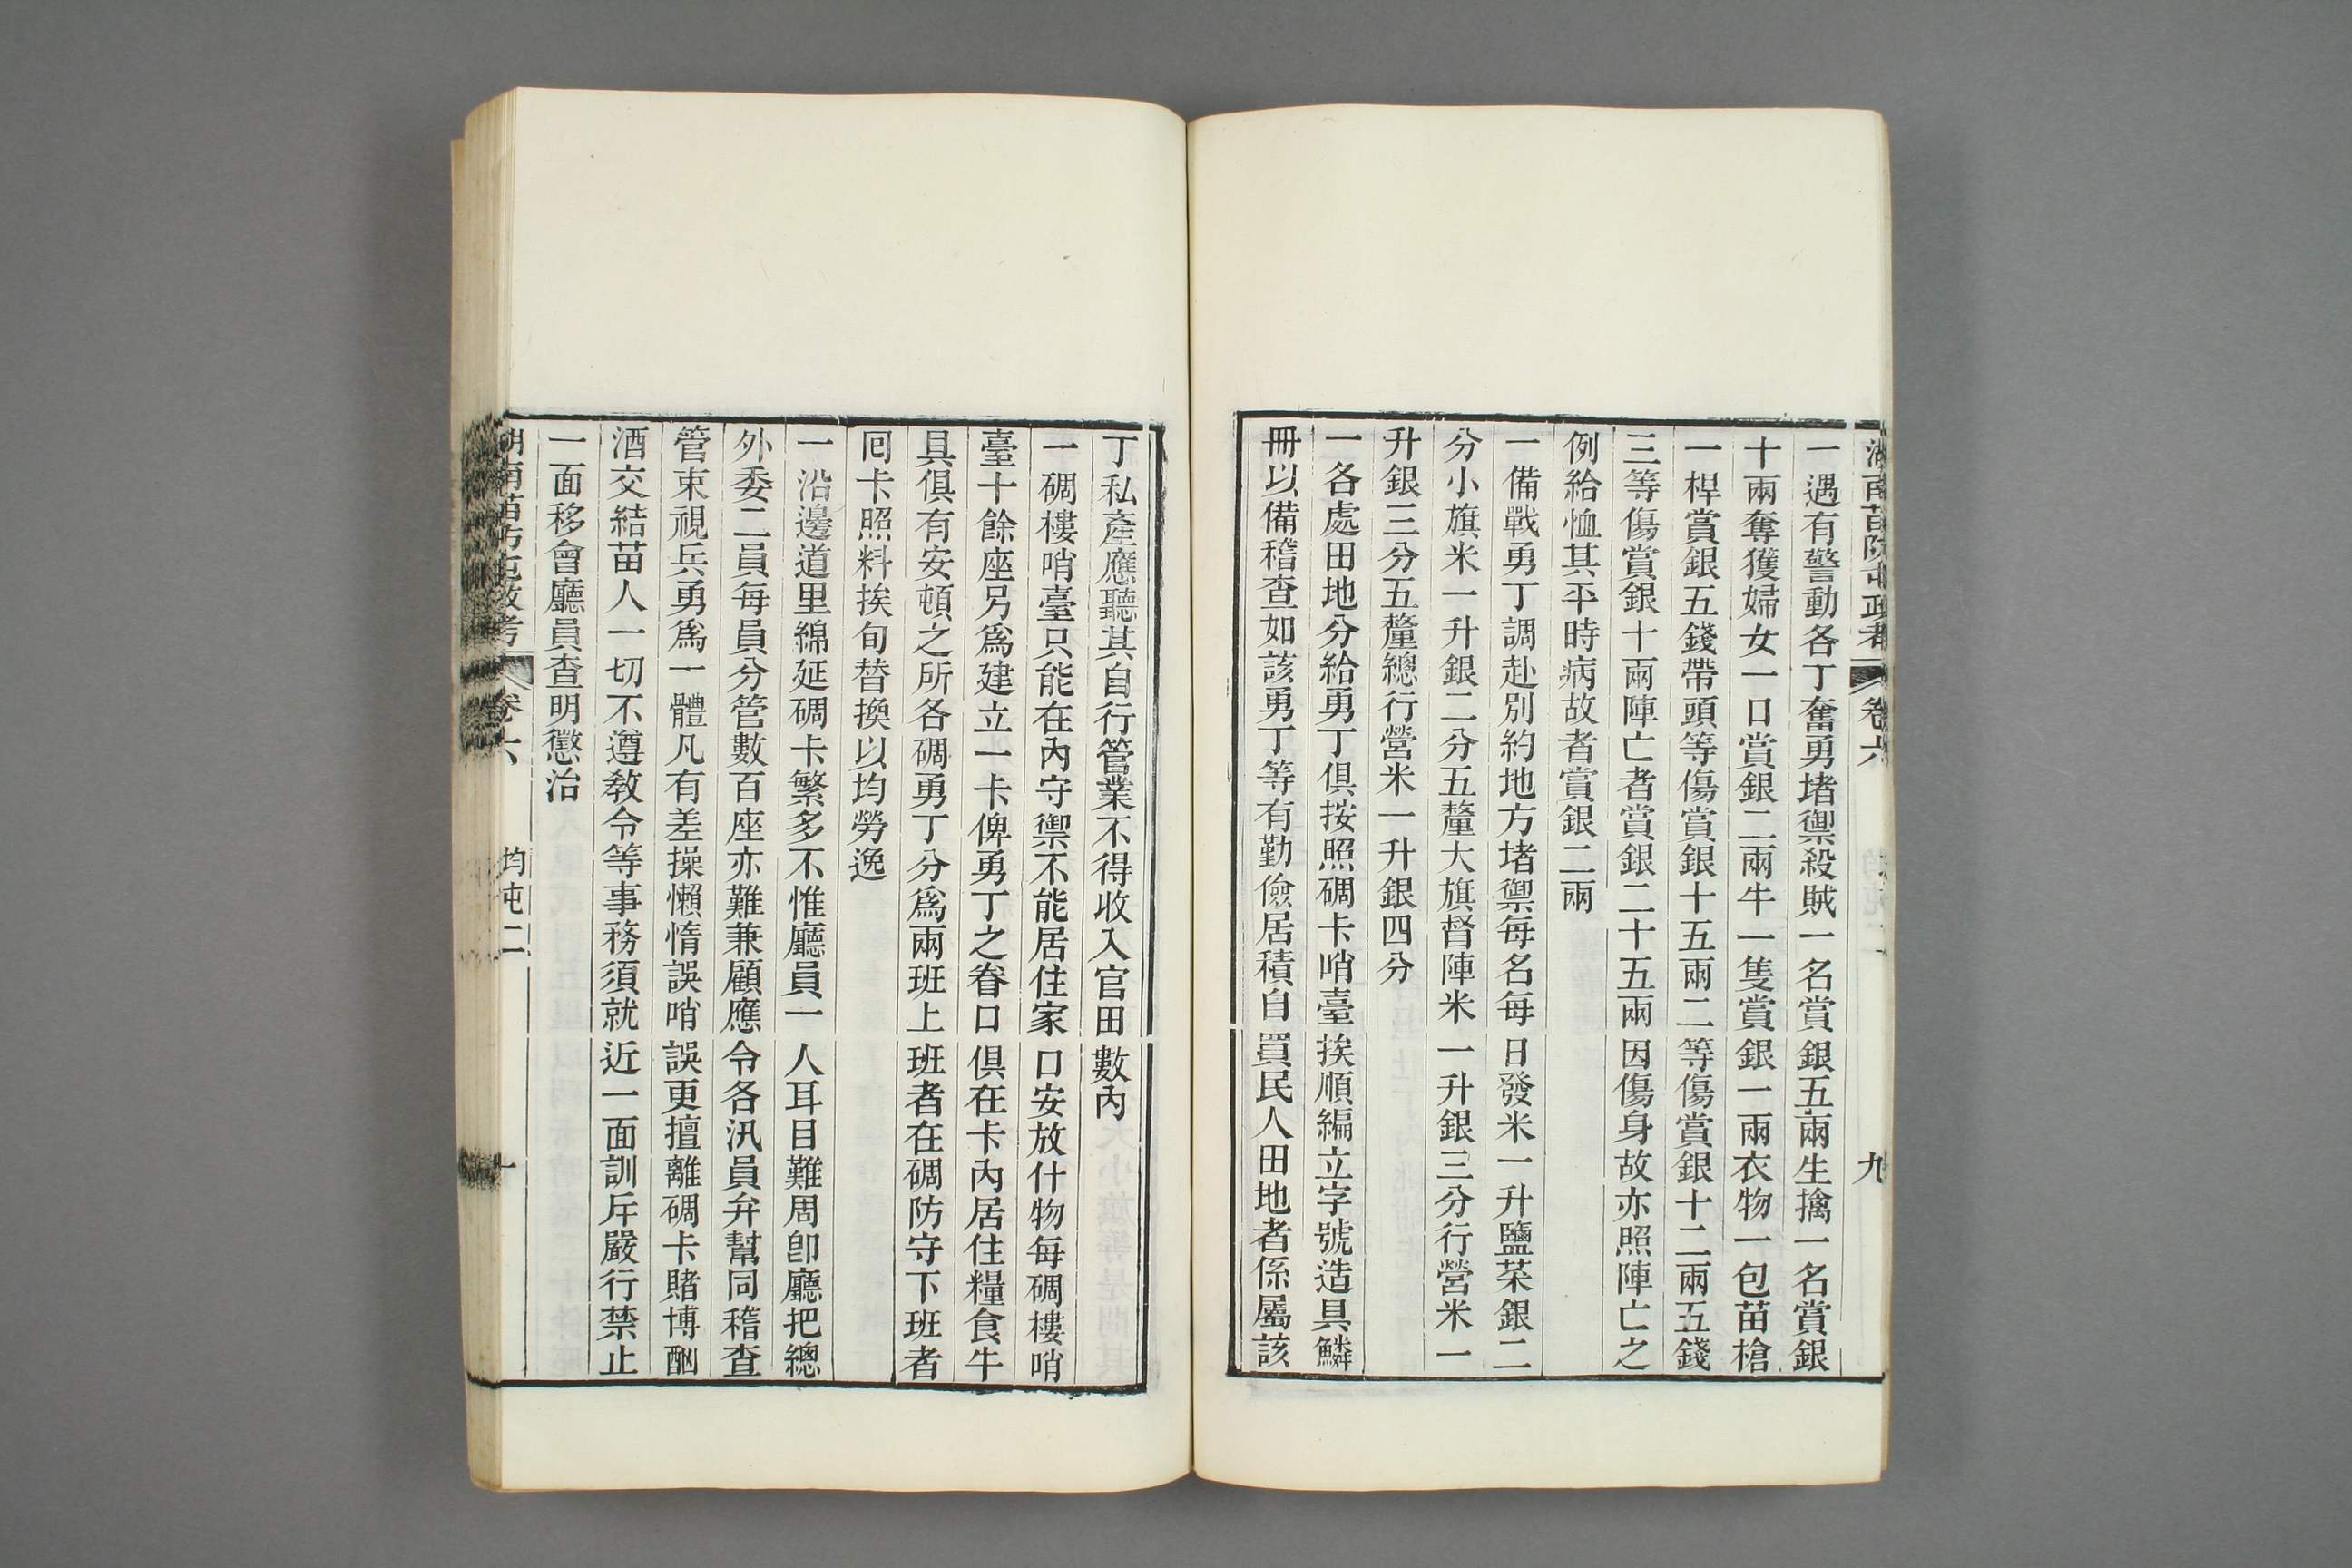 湖南苗防屯政考 卷六 九
一遇有警動各丁奮勇堵禦殺賊一名賞銀五兩生擒一名賞銀
十兩奪獲婦女一口賞銀二兩牛一隻賞銀一兩衣物一包苗槍
一桿賞銀五錢帶頭等傷賞銀十五兩二等傷賞銀十二兩五錢
三等傷賞銀十兩陣亡者賞銀二十五兩因傷身故亦照陣亡之
例給恤其平時病故者賞銀二兩
一備戰勇丁調赴別約地方堵禦每名每日發米一升鹽菜銀二
分小旗米一升銀二分五釐大旗督陣米一升銀三分行營米一
升銀三分五釐總行營米一升銀四分
一各處田地分給勇丁俱按照碉卡哨臺挨順編立字號造具鱗
冊以備稽查如該勇丁等有勤儉居積自買民人田地者係屬該
丁私產應聽其自行管業不得收入官田數內
一碉樓哨臺只能在內守禦不能居住家口安放什物每碉樓哨
臺十餘座另為建立一卡俾勇丁之眷口俱在卡內居住糧食牛
具俱有安頓之所各碉勇丁分為兩班上班者在碉防守下班者
囘卡照料挨旬替換以均勞逸
一沿邊道里綿延碉卡繁多不惟廳員一人耳目難周卽廳把總
外委二員每員分管數百座亦難兼顧應令各汛員弁幫同稽查
管束視兵勇為一體凡有差操懶惰誤哨誤更擅離碉卡賭博酗
酒交結苗人一切不遵教令等事務須就近一面訓斥嚴行禁止
一面移會廳員查明懲治
湖南苗防屯政考 卷六 均屯二 十